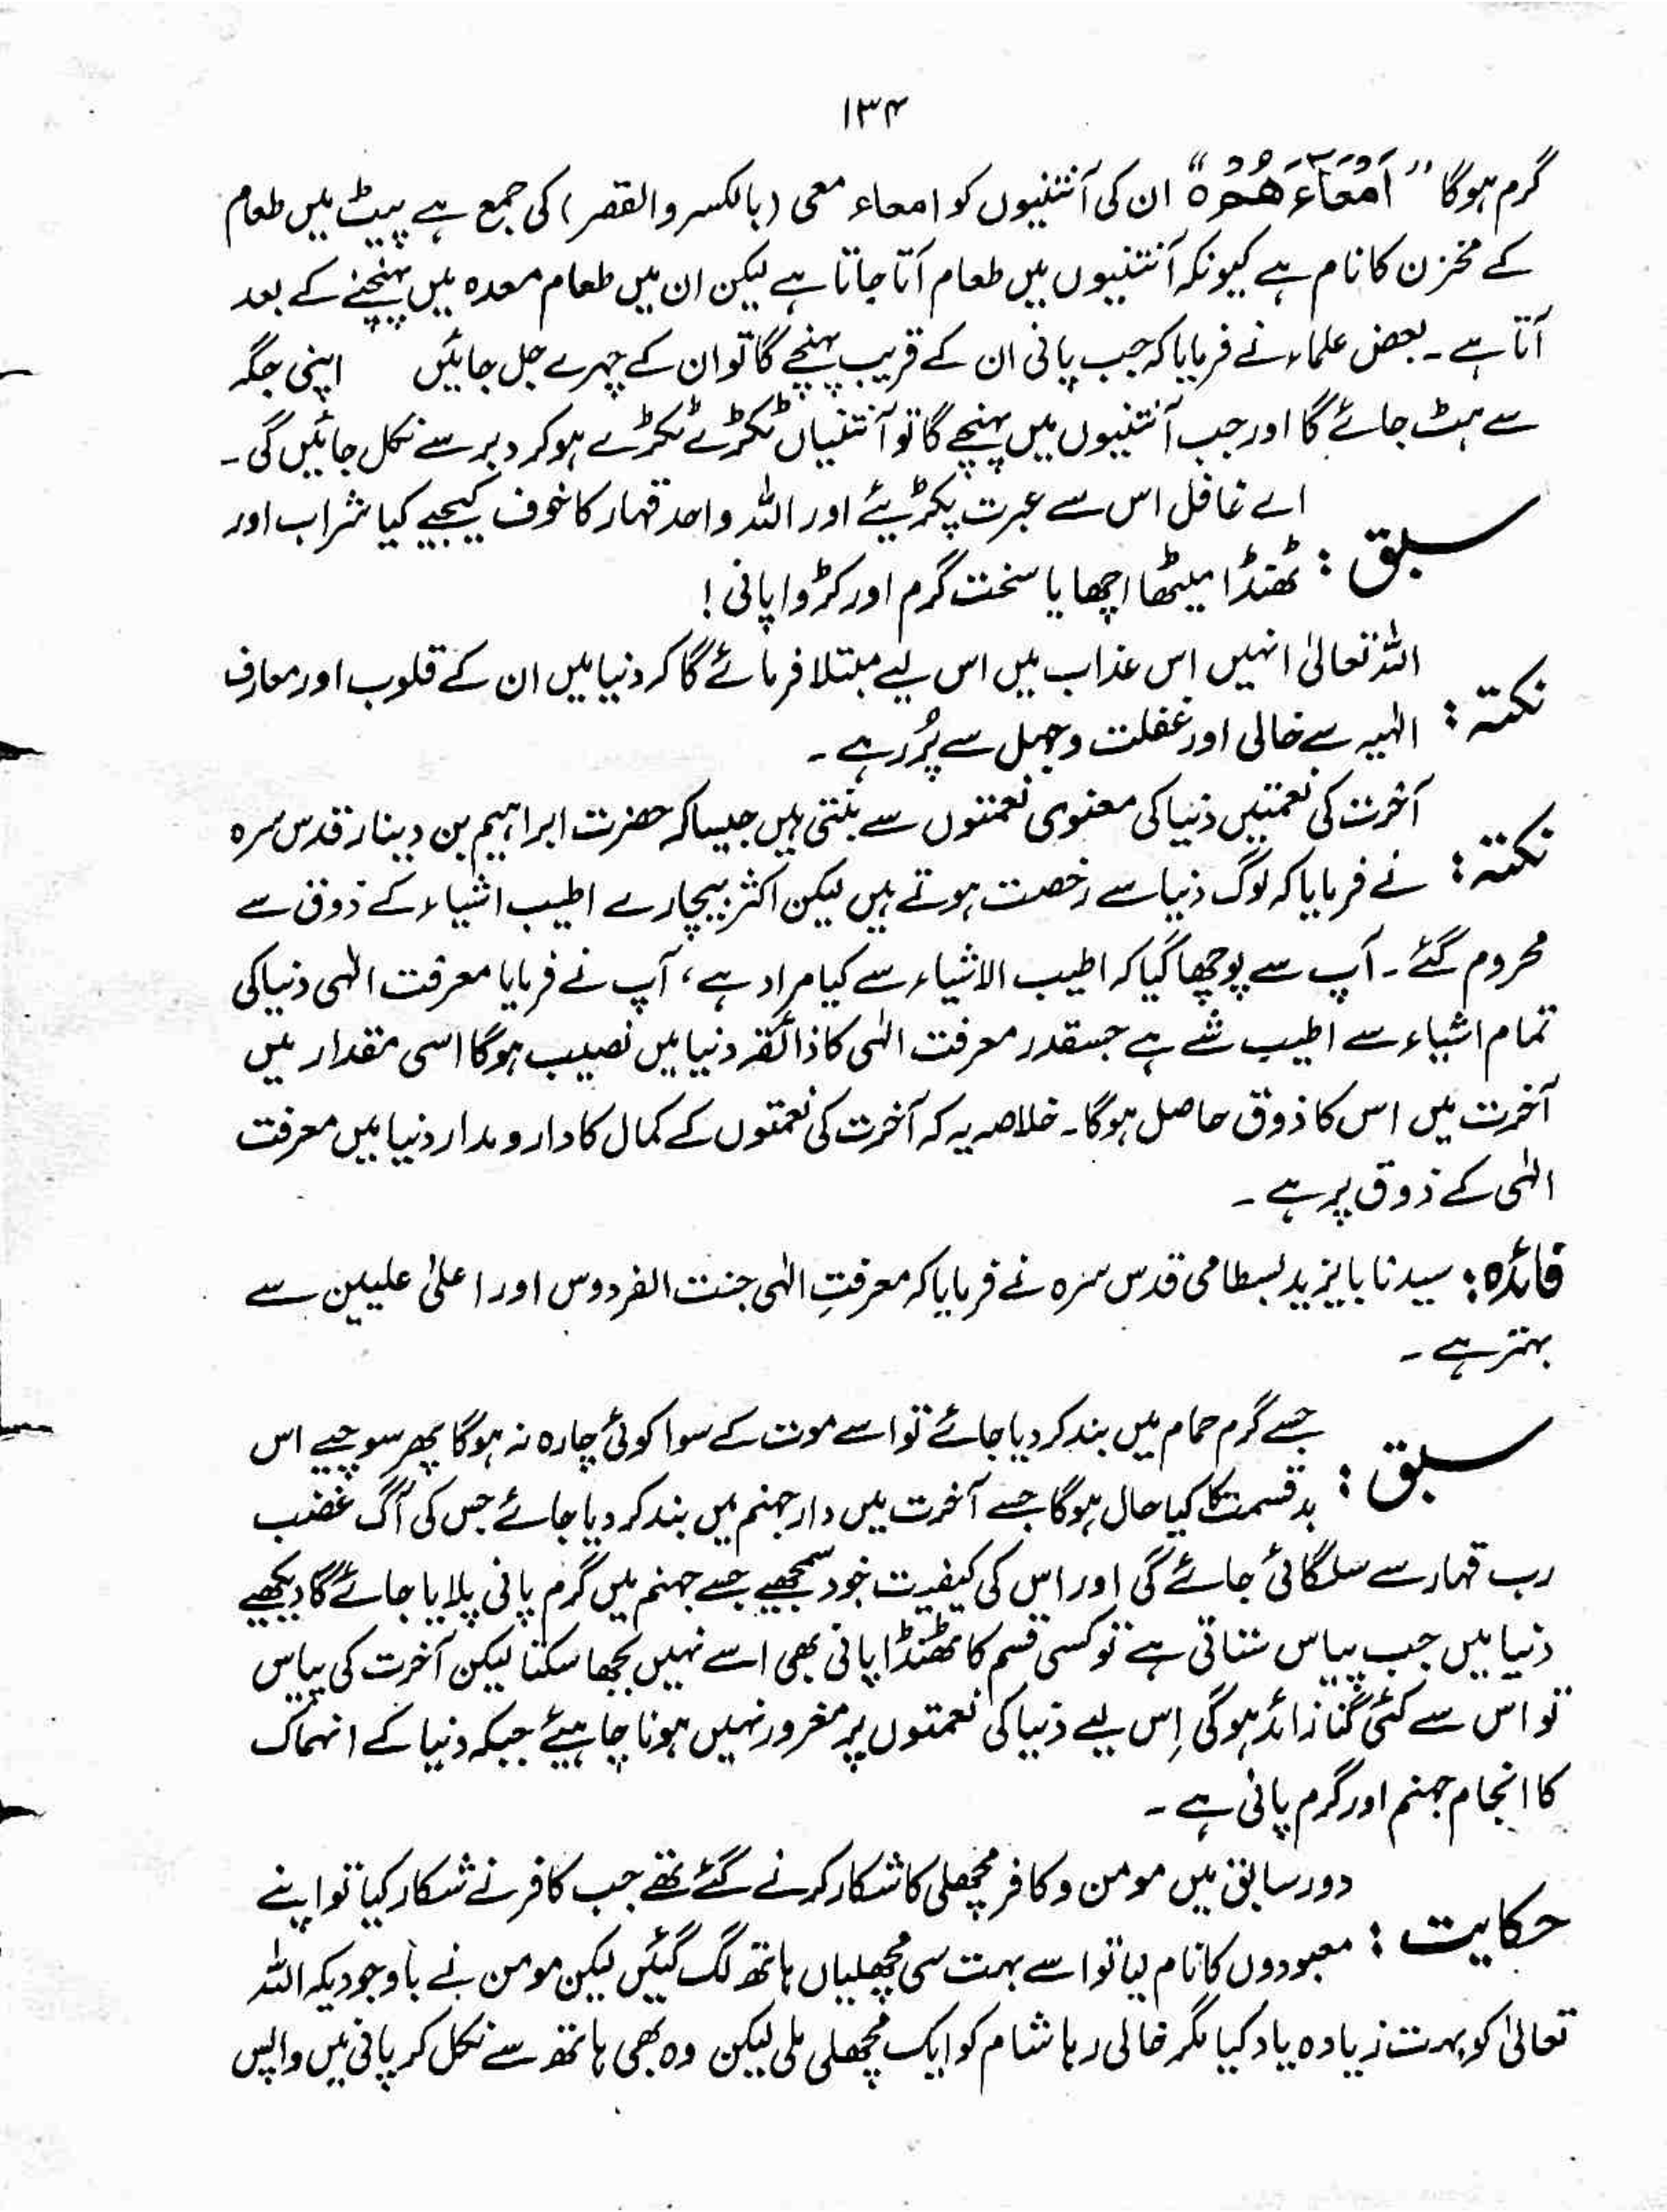 ۱۳۴
گرم ہوگا "اَمْعَآءَهُمْ ہ" ان کی آنتنیوں کو امعاء معی (بالکسر والقصر) کی جمع ہے پیٹ میں طعام
کے مخزن کا نام ہے کیونکہ آنتنیوں میں طعام آتا جاتا ہے لیکن ان میں طعام معدہ میں پہنچنے کے بعد
آتا ہے۔ بعض علماء نے فرمایا کہ جب پانی ان کے قریب پہنچے گا تو ان کے چہرے جل جائیں اپنی جگہ
سے ہٹ جائے گا اور جب آنتنیوں میں پہنچے گا تو آنتنیاں ٹکڑے ٹکڑے ہو کر دبر سے نکل جائیں گی۔
سبق : اے غافل اس سے عبرت پکڑیئے اور اللہ واحد قہار کا خوف کیجیے کیا شراب اور
ٹھنڈا میٹھا اچھا یا سخت گرم اور کڑوا پانی !
نکتہ : اللہ تعالیٰ انہیں اس عذاب میں اس لیے مبتلا فرمائے گا کہ دنیا میں ان کے قلوب اور معارف
الٰہیہ سے خالی اور غفلت و جہل سے پُر رہے ۔
نکتہ : آخرت کی نعمتیں دنیا کی معنوی نعمتوں سے بنتی ہیں جیسا کہ حضرت ابراہیم بن دینار قدس سرہ
نے فرمایا کہ لوگ دنیا سے رخصت ہوتے ہیں لیکن اکثر بیچارے اطیب اشیاء کے ذوق سے
محروم گئے ۔ آپ سے پوچھا گیا کہ اطیب الاشیاء سے کیا مراد ہے ، آپ نے فرمایا معرفت الٰہی دنیا کی
تمام اشیاء سے اطیب شے ہے جسقدر معرفت الٰہی کا ذائقہ دنیا میں نصیب ہوگا اسی مقدار میں
آخرت میں اس کا ذوق حاصل ہوگا۔ خلاصہ یہ کہ آخرت کی نعمتوں کے کمال کا دار و مدار دنیا میں معرفت
الٰہی کے ذوق پر ہے ۔
فائدہ : سیدنا بایزید بسطامی قدس سرہ نے فرمایا کہ معرفتِ الٰہی جنت الفردوس اور اعلیٰ علیین سے
بہتر ہے ۔
سبق : جسے گرم حمام میں بند کر دیا جائے تو اسے موت کے سوا کوئی چارہ نہ ہوگا پھر سوچیے اس
بدقسمت کا کیا حال ہوگا جسے آخرت میں دار جہنم میں بند کر دیا جائے جس کی آگ غضب
رب قہار سے سلگائی جائے گی اور اس کی کیفیت خود سمجھیے جسے جہنم میں گرم پانی پلایا جائے گا دیکھیے
دنیا میں جب پیاس ستاتی ہے تو کسی قسم کا ٹھنڈا پانی بھی اسے نہیں بجھا سکتا لیکن آخرت کی پیاس
تو اس سے کئی گنا زائد ہوگی اِس لیے دنیا کی نعمتوں پر مغرور نہیں ہونا چاہیئے جبکہ دنیا کے انہماک
کا انجام جہنم اور گرم پانی ہے ۔
حکایت : دور سابق میں مومن و کافر مچھلی کا شکار کرنے گئے تھے جب کافر نے شکار کیا تو اپنے
معبودوں کا نام لیا تو اسے بہت سی مچھلیاں ہاتھ لگ گئیں لیکن مومن نے باوجودیکہ اللہ
تعالیٰ کو بہت زیادہ یاد کیا مگر خالی رہا شام کو ایک مچھلی ملی لیکن وہ بھی ہاتھ سے نکل کر پانی میں واپس